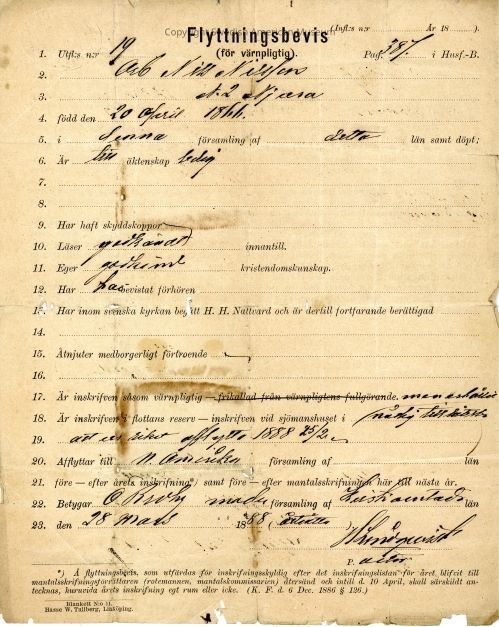 Copyright
(Infl:s n:r År 18 ).
Flyttningsbevis
(för värnpligtig).
1. Utfl:s n:r 19 Pag: 387. i Husf.-B.
2. Arb Nils Nilsson
3. N. 2
4. född den 20 April 1866.
5. i denna församling af detta län samt döpt;
6. Är till äktenskap ledig
7.
8.
9. Har haft skyddskoppor
10. Läser godkändt innantill.
11. Eger godkänd kristendomskunskap.
12. Har bevistat förhören
13. Har inom svenska kyrkan begått H. H. Nattvard och är dertill fortfarande berättigad
14.
15. Åtnjuter medborgerligt förtroende
16.
17. Är inskrifven såsom värnpligtig – frikallad från värnpligtens fullgörande.
18. Är inskrifven i flottans reserv – inskrifven vid sjömanshuset i
19. afflytta 1888 25/2
20. Afflyttar till N. Amerika församling af län
21. före – efter årets inskrifning *) samt före – efter mantalsskrifningen här till nästa år.
22. Betygar församling af Kristianstads län
23. den 28 mars 1888,
P.
*) Å flyttningsbevis, som utfärdas för inskrifningsskyldig efter det inskrifningslistan för året blifvit till
mantalsskrifningsförrättaren (rotemannen, mantalskommissarien) återsänd och intill d. 10 April, skall särskildt an-
tecknas, huruvida årets inskrifning egt rum eller icke. (K. F. d. 6 Dec. 1886 § 126.)
Blankett N:o 11.
Hasse W. Tullberg, Linköping.